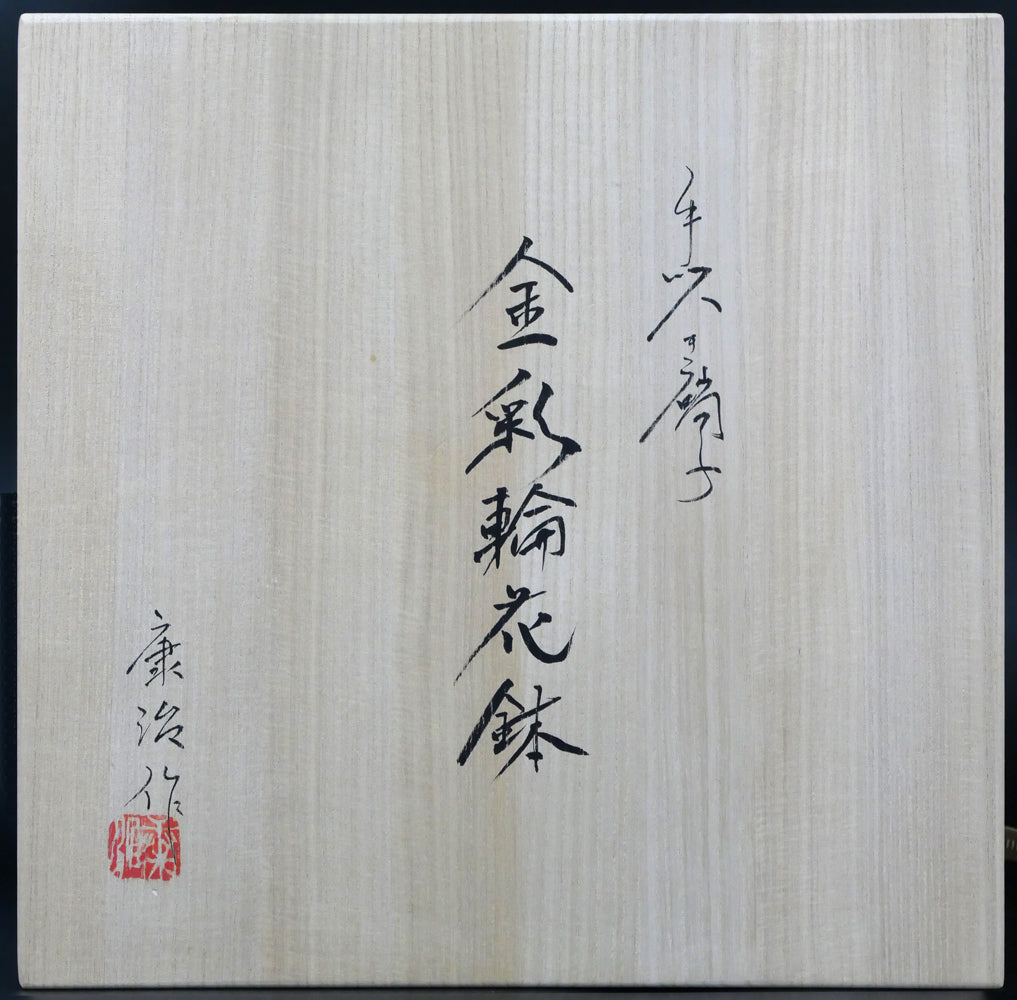 手吹き硝子
金彩輪花鉢
康治作